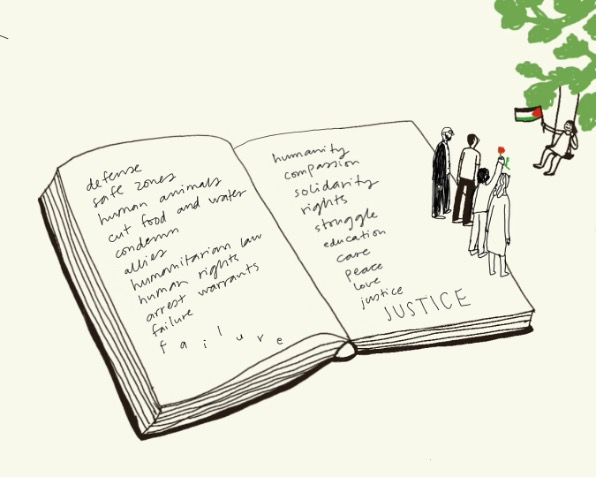 defense
safe zones
human animals
cut food and water
condemn
allies
humanitarian law
human rights
arrest warrants
failure
f a i l u r e
humanity
compassion
solidarity
rights
struggle
education
care
peace
love
justice
JUSTICE